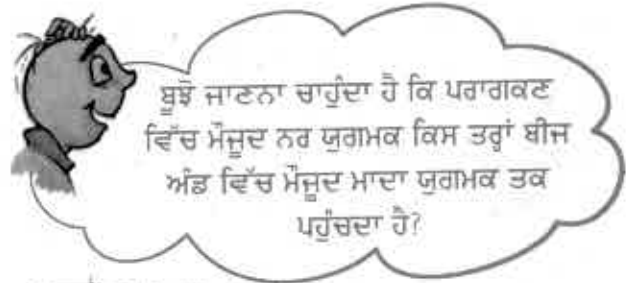 ਬੂਝੋ ਜਾਣਨਾ ਚਾਹੁੰਦਾ ਹੈ ਕਿ ਪਰਾਗਕਣ
ਵਿੱਚ ਮੌਜੂਦ ਨਰ ਯੁਗਮਕ ਕਿਸ ਤਰ੍ਹਾਂ ਬੀਜ
ਅੰਡ ਵਿੱਚ ਮੌਜੂਦ ਮਾਦਾ ਯੁਗਮਕ ਤਕ
ਪਹੁੰਚਦਾ ਹੈ?